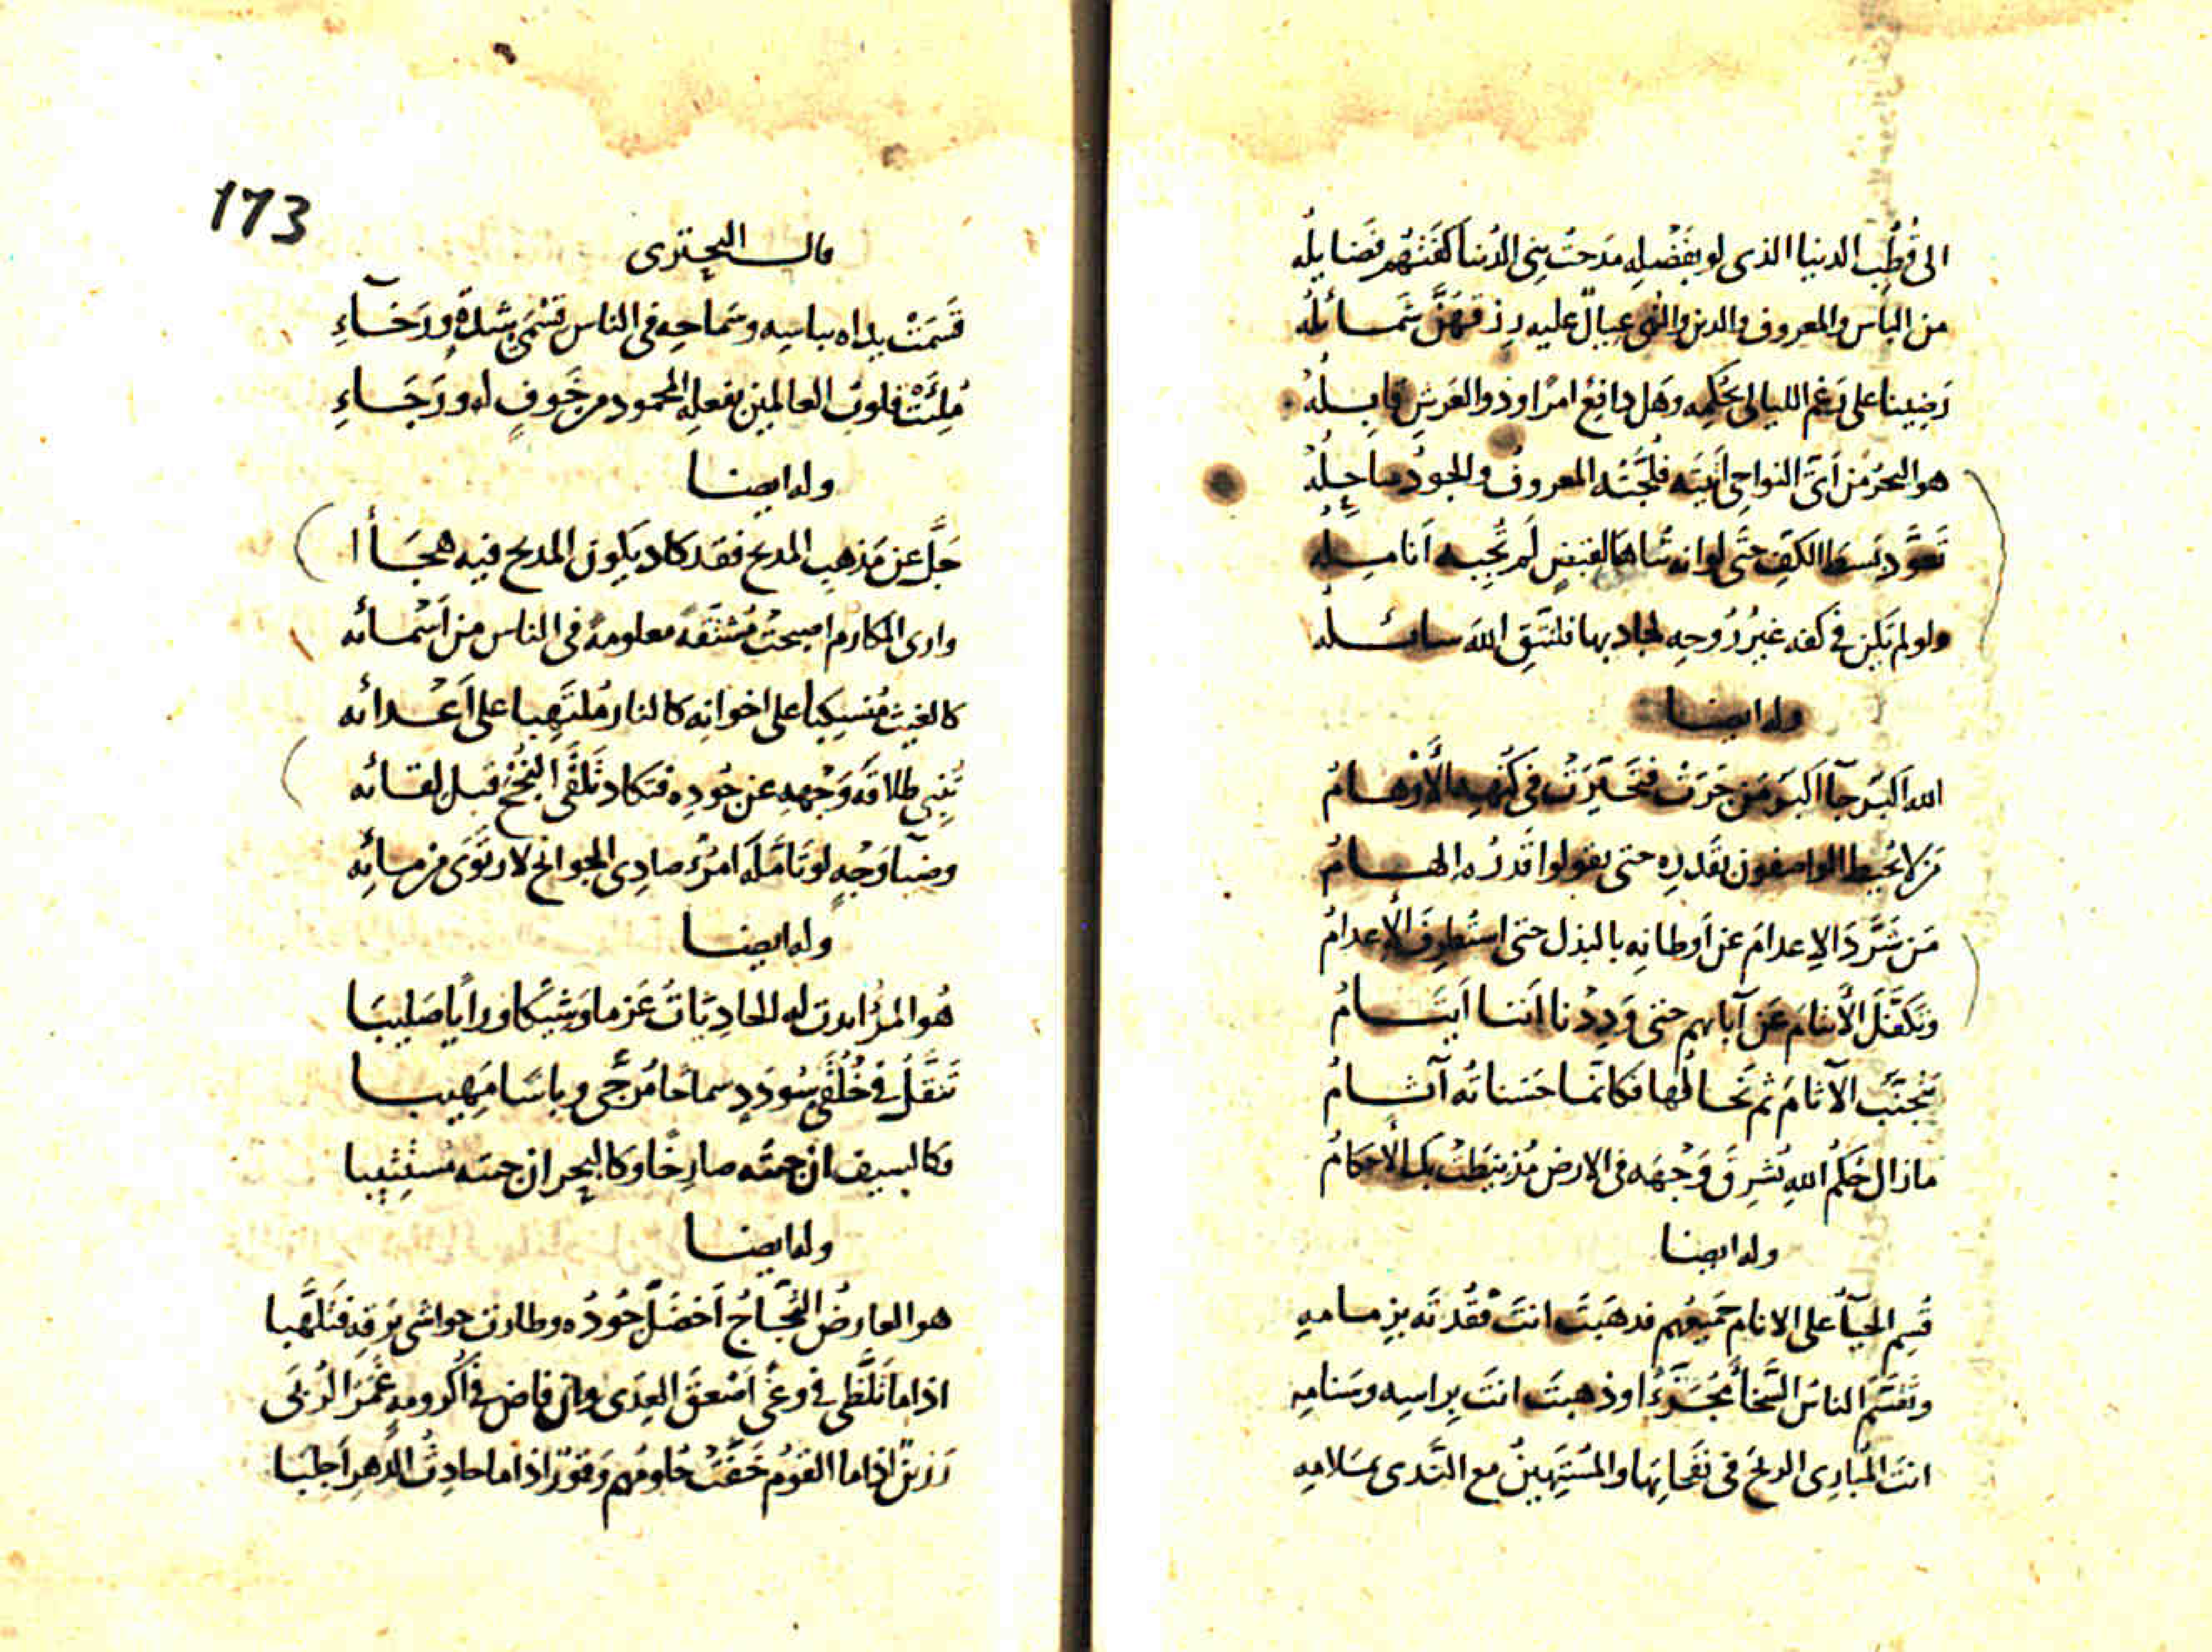 الى قُطْبِ الدنيا الذى لو بفَضْلِه مَدحتُ بنى الدُنيا كفَتْهُم فضايلُه
من الباْس والمعروف والدين والتُقى عيالٌ عليه رِزقُهُنَّ شَمائلُه
رَضِينا على رَغْم الليالى بحُكمِه وهَل دافِعٌ امرًا وذو العَرشِ قايلُه
هو البحرُ من اَىّ النواحِى اَتَيتَه فلُجَّتُه المعروفُ والجودُ ساحِلُه
تَعوَّد بَسطَ الكَفِ حتَّى لو انه ثناها لقبضٍ لَم تُجِبه اَناملِه
ولو لم يَكن فى كفه غيرُ رُوحِه لجاد بها فليتَّقِ اللهَ سائله
وله ايضا
الله اَكبر جآ اَكبَر مَن جَرَتْ فتَحَيَّرَتْ فى كُنْهِه الأَوْهامُ
من لا يُحيط الواصفون بقَدرِه حتى يقولوا قَدرُه الهامُ
مَن شَرَّدَ الاِعدامَ عن اَوطانِه بالبذل حتى استُطرِفَ الإعدامُ
وتكفَّلَ الأيتامَ عَن آبائهم حتى وَدِدْنا اَننا اَيتامُ
يَتَجنَّب الآثامَ ثم يَخافُها فكانّما حَسَناتُه آثامُ
مازال حُكمُ اللهِ يُشرِقُ وَجْهَه فى الارض مُذ نيطَتْ بك الأحكامُ
وله ايضا
قُسِم الحيآُ على الانام جَميعِهم فذهَبتَ انتَ فقُدتَه بزِمامهِ
وتقَسَّم الناسُ السَّخآءَ مُجَزَّءًا وذهبتَ انتَ براسِه وسَنامِه
انتَ المُبارِى الريحَ فى نفَحاتِها والمُستَهينُ مع النَّدى بمَلامِه
173
قال البحترى
قَسَمَتْ يداه بباسِه وسَماحِه فى الناس قِسْمَى شِدَّةٍ ورَخآءِ
مُلِئَتْ قلوبُ العالمين بفعلِه المحمود من خَوفٍ له ورَجاءِ
وله ايضا
جَلَّ عن مَذهبِ المديح فقد كاد يكون المديح فيه هجاأ
وارى المكارم اصبحتْ مُشتَقَةً معلومةً فى الناس من اَسْمائه
كالغيث مُنسكِبا على اخوانِه كالنار مُلتَهِبا على اَعْدائه
تُنبِى طلاقةُ وَجْهِه عن جُودِه فتكاد تَلقَى النُجْحَ قبل لقائه
وضيآ وَجْهٍ لو تَامَّلَه امرُؤ صادِى الجوانح لارتَوَى من مائِه
وله ايضا
هُو المرُ ابدت له الحادِثاتُ عَزما وَشِيكا وراْيا صَليبَا
تَنقَّل فى خُلُقَى سُودَدٍ سماحًا مُرجَّى وباْسًا مَهِيبا
فكالسيف ان جئتَه صارِخًا وكالبحر ان جئتَه مُستَثِيبا
وله ايضا
هو العارضُ الثجّاجُ اَخضَلَ جُودُه وطارت حواشى بَرقِه فتَلَهَّبا
اذا ما تَلظَّى فى وغًى اَصْعقَ العِدَى وان فاض فى اُكرومةٍ غَمَرَ الرُبَى
رَزينٌ اذاما القومُ خَفَّتْ حُلومُهم وَقورٌ اذاما حادِثُ الدَّهرِ اَجلبَا